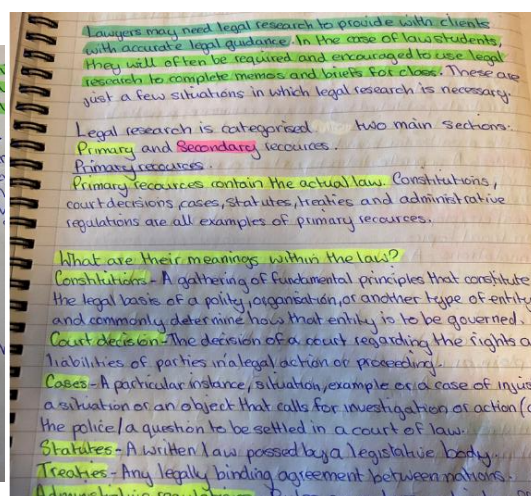 Lawyers may need legal research to provide with clients
with accurate legal guidance. In the case of law students,
they will often be required and encouraged to use legal
research to complete memos and briefs for class. These are
just a few situations in which legal research is necessary.
Legal research is categorised two main sections.
Primary and Secondary recources.
Primary recources.
Primary recources contain the actual law. Constitutions,
court decisions, cases, statutes, treaties and administrative
regulations are all examples of primary recources.
What are their meanings within the law?
Constitutions - A gathering of fundamental principles that constitute
the legal basis of a polity, organisation, or another type of entity
and commonly determine how that entity is to be governed.
Court decision - The decision of a court regarding the rights a
liabilities of parties in a legal action or proceeding.
Cases - A particular instance, situation, example or a case of
a situation or an object that calls for investigation or action (
the police / a question to be settled in a court of law.
Statutes - A written law passed by a legislative body.
Treaties - Any legally binding agreement between nations.